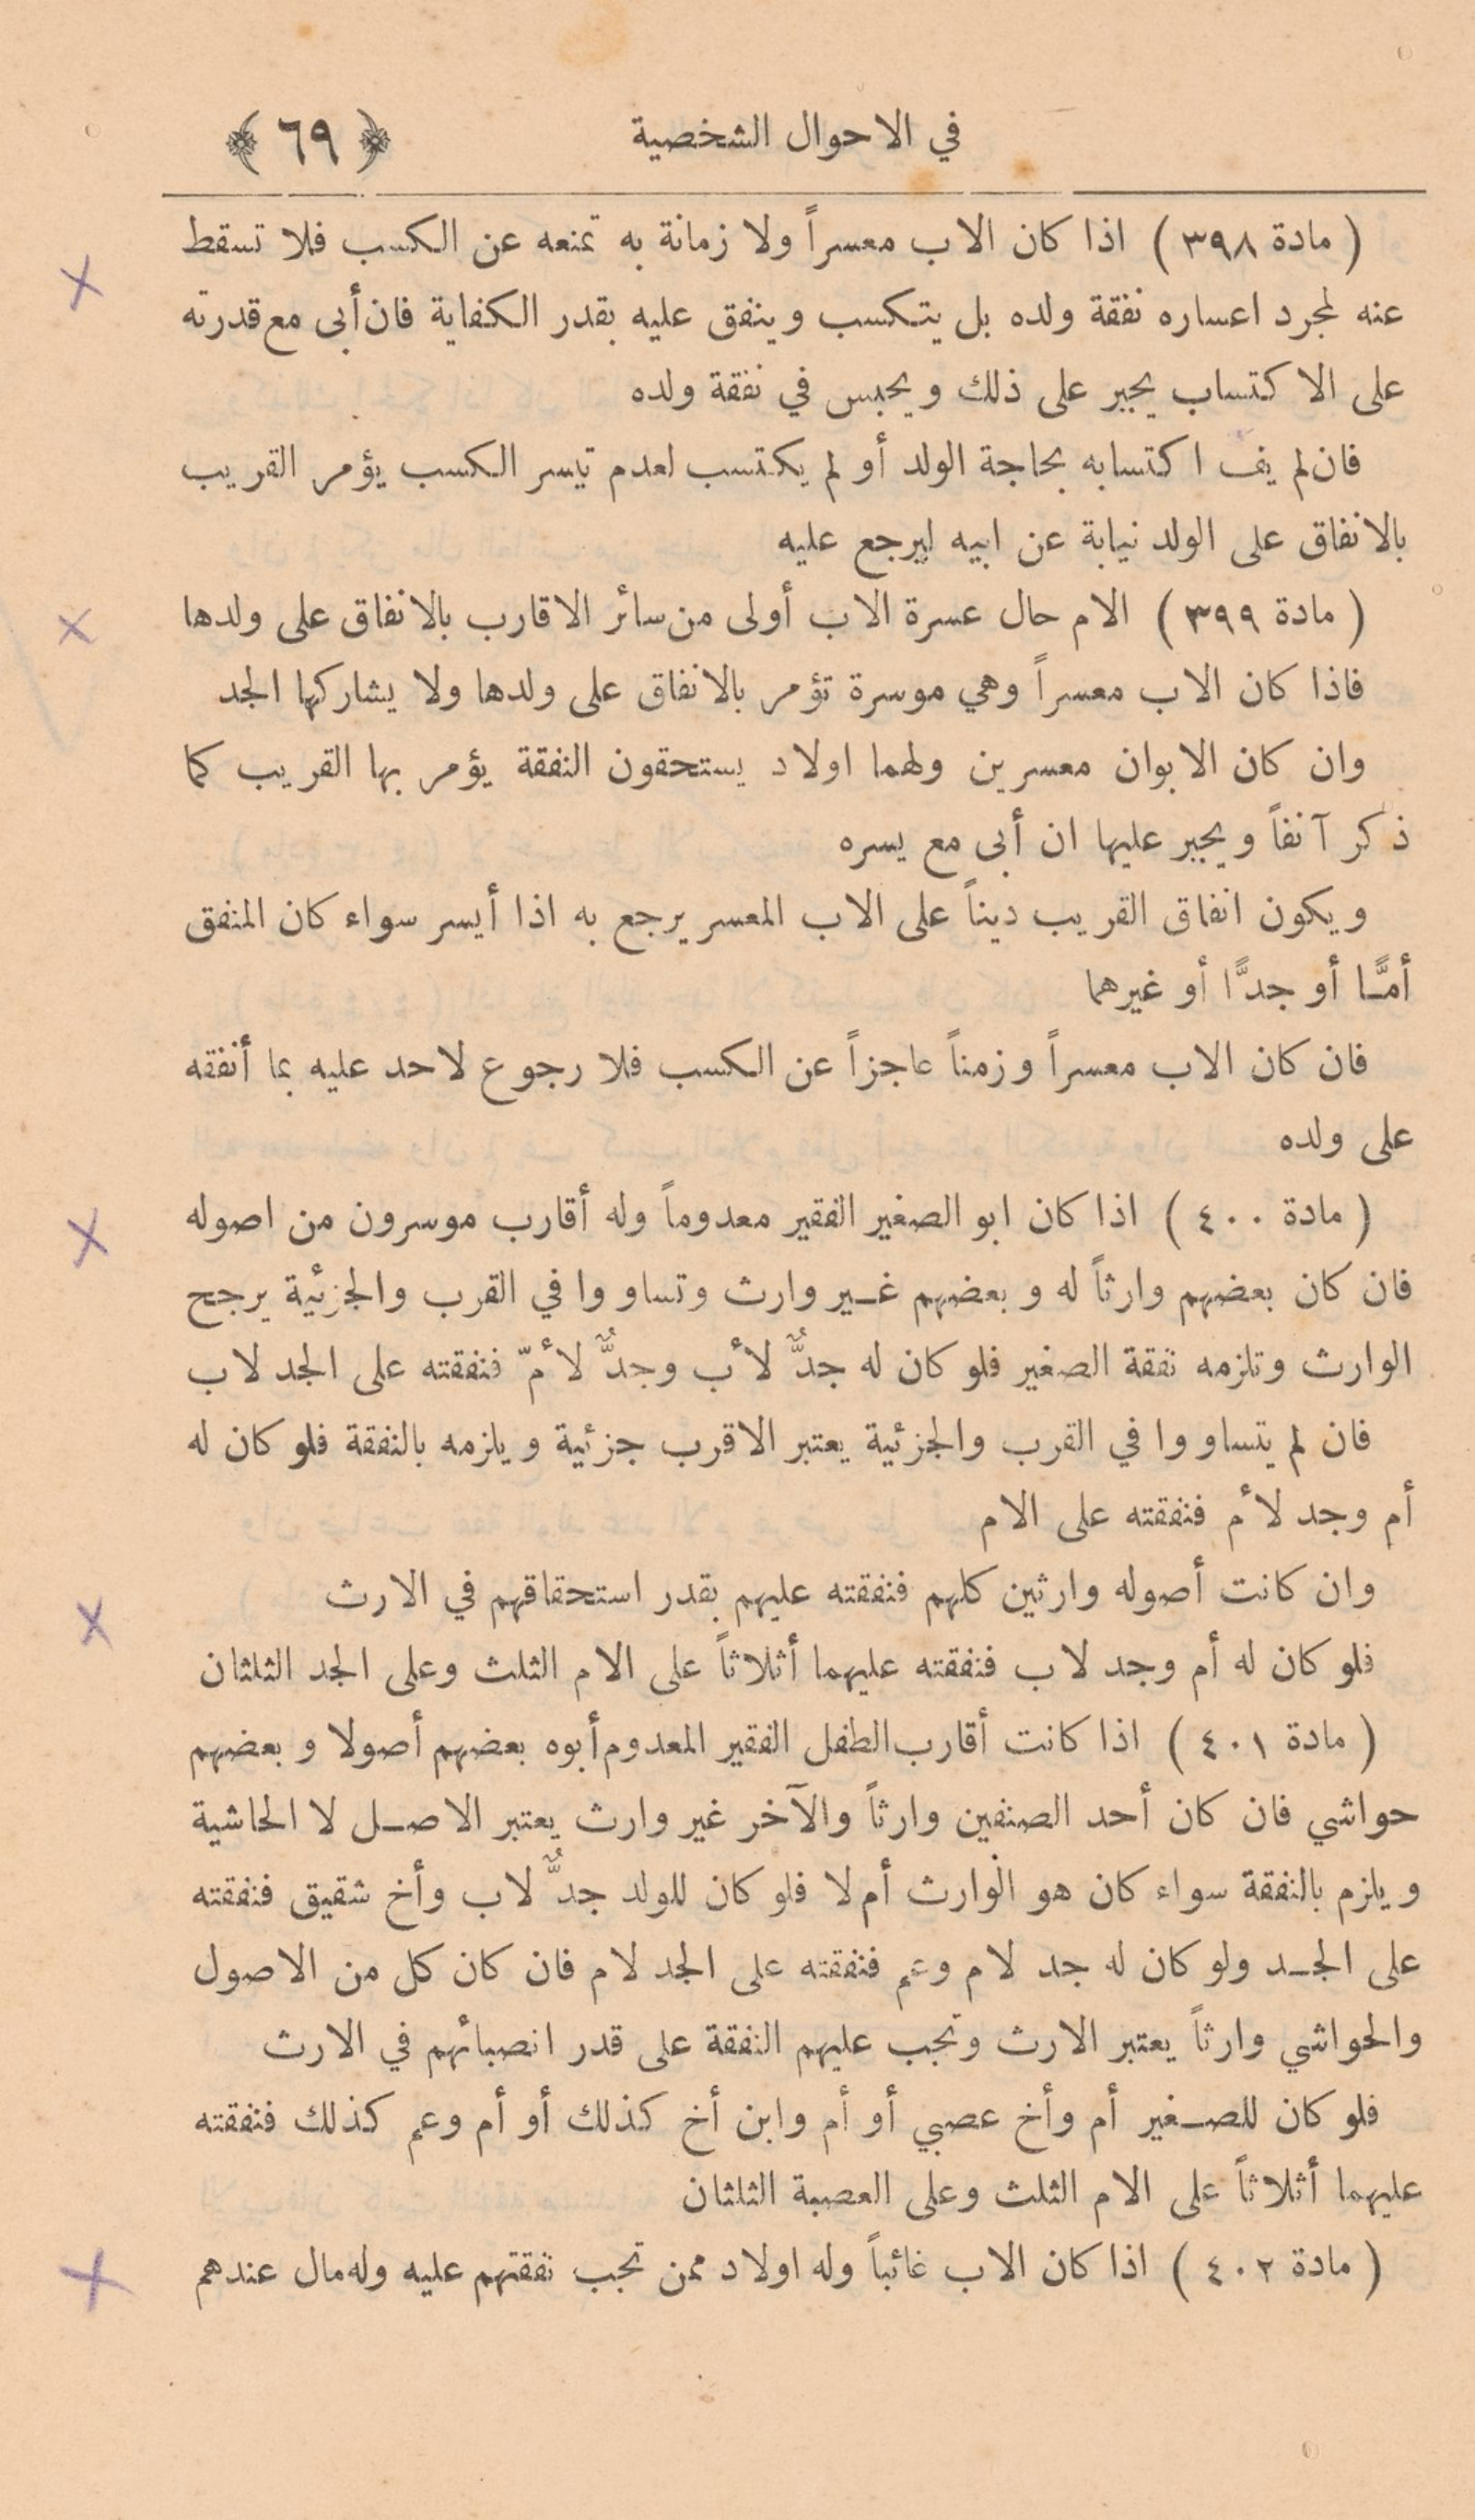 في الاحوال الشخصية ﴿ ٦٩ ﴾
( مادة ٣٩٨ ) اذا كان الاب معسراً ولا زمانة به تمنعه عن الكسب فلا تسقط
عنه لمجرد اعساره نفقة ولده بل يتكسب وينفق عليه بقدر الكفاية فان أبى مع قدرته
على الاكتساب يجبر على ذلك ويحبس في نفقة ولده
فان لم يف اكتسابه بحاجة الولد أو لم يكتسب لعدم تيسر الكسب يؤمر القريب
بالانفاق على الولد نيابة عن ابيه ليرجع عليه
( مادة ٣٩٩ ) الام حال عسرة الاب أولى من سائر الاقارب بالانفاق على ولدها
فاذا كان الاب معسراً وهي موسرة تؤمر بالانفاق على ولدها ولا يشاركها الجد
وان كان الابوان معسرين ولهما اولاد يستحقون النفقة يؤمر بها القريب كما
ذكر آنفاً ويجبر عليها ان أبى مع يسره
ويكون انفاق القريب ديناً على الاب المعسر يرجع به اذا أيسر سواء كان المنفق
أمًّا أو جدًّا أو غيرهما
فان كان الاب معسراً وزمناً عاجزاً عن الكسب فلا رجوع لاحد عليه بما أنفقه
على ولده
( مادة ٤٠٠ ) اذا كان ابو الصغير الفقير معدوماً وله أقارب موسرون من اصوله
فان كان بعضهم وارثاً له وبعضهم غـير وارث وتساووا في القرب والجزئية يرجح
الوارث وتلزمه نفقة الصغير فلو كان له جدٌّ لأب وجدٌّ لأمّ فنفقته على الجد لاب
فان لم يتساووا في القرب والجزئية يعتبر الاقرب جزئية ويلزمه بالنفقة فلو كان له
أم وجد لأم فنفقته على الام
وان كانت أصوله وارثين كلهم فنفقته عليهم بقدر استحقاقهم في الارث
فلو كان له أم وجد لاب فنفقته عليهما أثلاثاً على الام الثلث وعلى الجد الثلثان
( مادة ٤٠١ ) اذا كانت أقارب الطفل الفقير المعدوم أبوه بعضهم أصولا وبعضهم
حواشي فان كان أحد الصنفين وارثاً والآخر غير وارث يعتبر الاصـل لا الحاشية
ويلزم بالنفقة سواء كان هو الوارث أم لا فلو كان للولد جدٌّ لاب وأخ شقيق فنفقته
على الجـد ولو كان له جد لام وعم فنفقته على الجد لام فان كان كل من الاصول
والحواشي وارثاً يعتبر الارث وتجب عليهم النفقة على قدر انصبائهم في الارث
فلو كان للصـغير أم وأخ عصبي أو أم وابن أخ كذلك أو أم وعم كذلك فنفقته
عليهما أثلاثاً على الام الثلث وعلى العصبة الثلثان
( مادة ٤٠٢ ) اذا كان الاب غائباً وله اولاد ممن تجب نفقتهم عليه وله مال عندهم